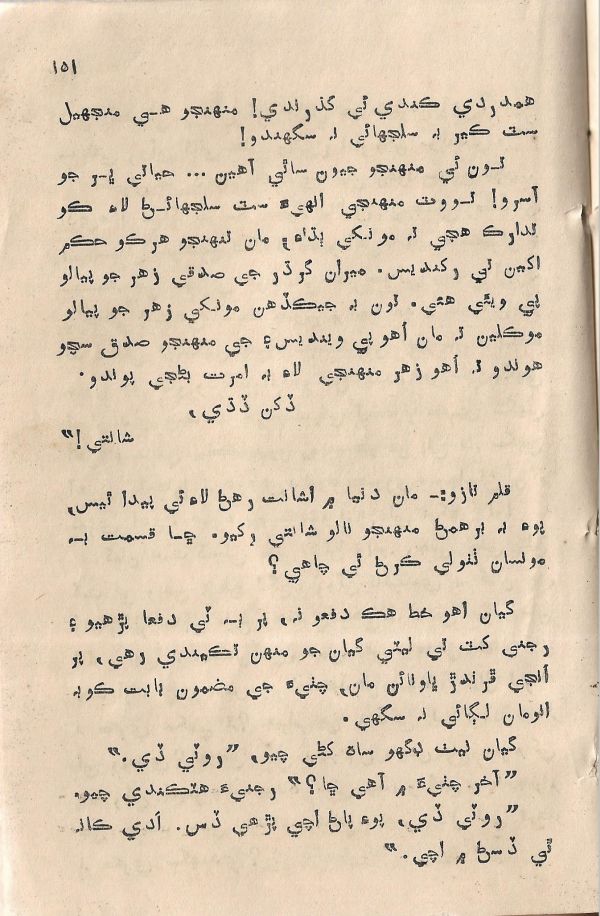 ١٥١
همدردي ڪندي ئي گذرندي! منهنجو هي منجهيل
سٽ ڪير بہ سلجهائي نہ سگهندو!
تون ئي منهنجو جيون ساٿي آهين ... حياتي ڀر جو
آسرو! تو وٽ منهنجي الهيءَ سٽ سلجهائڻ لاءِ ڪو
تدارڪ هجي تہ مونکي ٻڌاءِ، مان تنهنجو هرڪو حڪم
اکين تي رکنديس. ميران گرڌر جي صدقي زهر جو پيالو
پي ويئي هئي. تون بہ جيڪڏهن مونکي زهر جو پيالو
موڪلين تہ مان اُهو پي وينديس ۽ جي منهنجو صدق سچو
هوندو تہ اُهو زهر منهنجي لاءِ بہ امرت بڻجي پوندو.
ڏکن ڏڌي،
شانتي!”
قلم تازو:ـ مان دنيا ۾ اشانت رهڻ لاءِ ئي پيدا ٿيس،
پوءِ بہ برهمڻ منهنجو نالو شانتي رکيو. ڇا قسمت بہ
مونسان ٺٺولي ڪرڻ ٿي چاهي؟
گيان اهو خط هڪ دفعو نہ، پر ٻہ ٽي دفعا پڙهيو ۽
رجني کٽ تي ليٽي گيان جو منهن تڪيندي رهي، پر
اُنجي ڦرندڙ ڀاونائن مان، چٺيءَ جي مضمون بابت ڪوبہ
انومان لڳائي نہ سگهي.
گيان نيٺ ڊگهو ساهہ کڻي چيو، “روٽي ڏي.”
“آخر چٺيءَ ۾ آهي ڇا؟” رجنيءَ هٽڪندي چيو.
“روٽي ڏي، پوءِ پاڻ اچي پڙهي ڏس. اَدي ڪانہ
ٿي ڏسڻ ۾ اچي.”